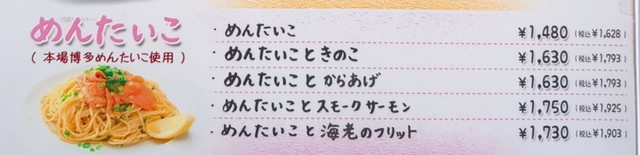 めんたいこ
( 本場博多めんたいこ使用 )
・めんたいこ ¥1,480 (税込¥1,628)
・めんたいこときのこ ¥1,630 (税込¥1,793)
・めんたいことからあげ ¥1,630 (税込¥1,793)
・めんたいことスモークサーモン ¥1,750 (税込¥1,925)
・めんたいこと海老のフリット ¥1,730 (税込¥1,903)